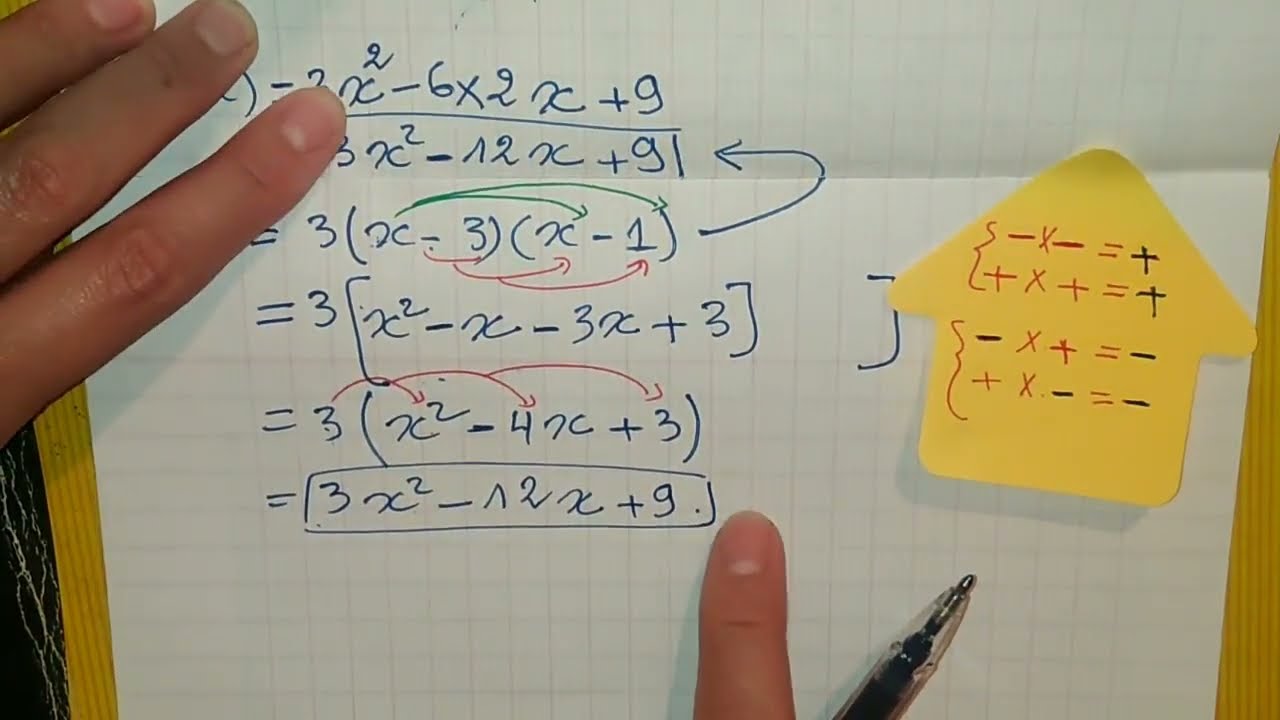 ) = 3x² - 6×2x + 9
3x² - 12x + 9
= 3(x - 3)(x - 1)
= 3[x² - x - 3x + 3]
]
= 3(x² - 4x + 3)
= 3x² - 12x + 9.
{ - x - = +
+ x + = +
{ - x + = -
+ x - = -